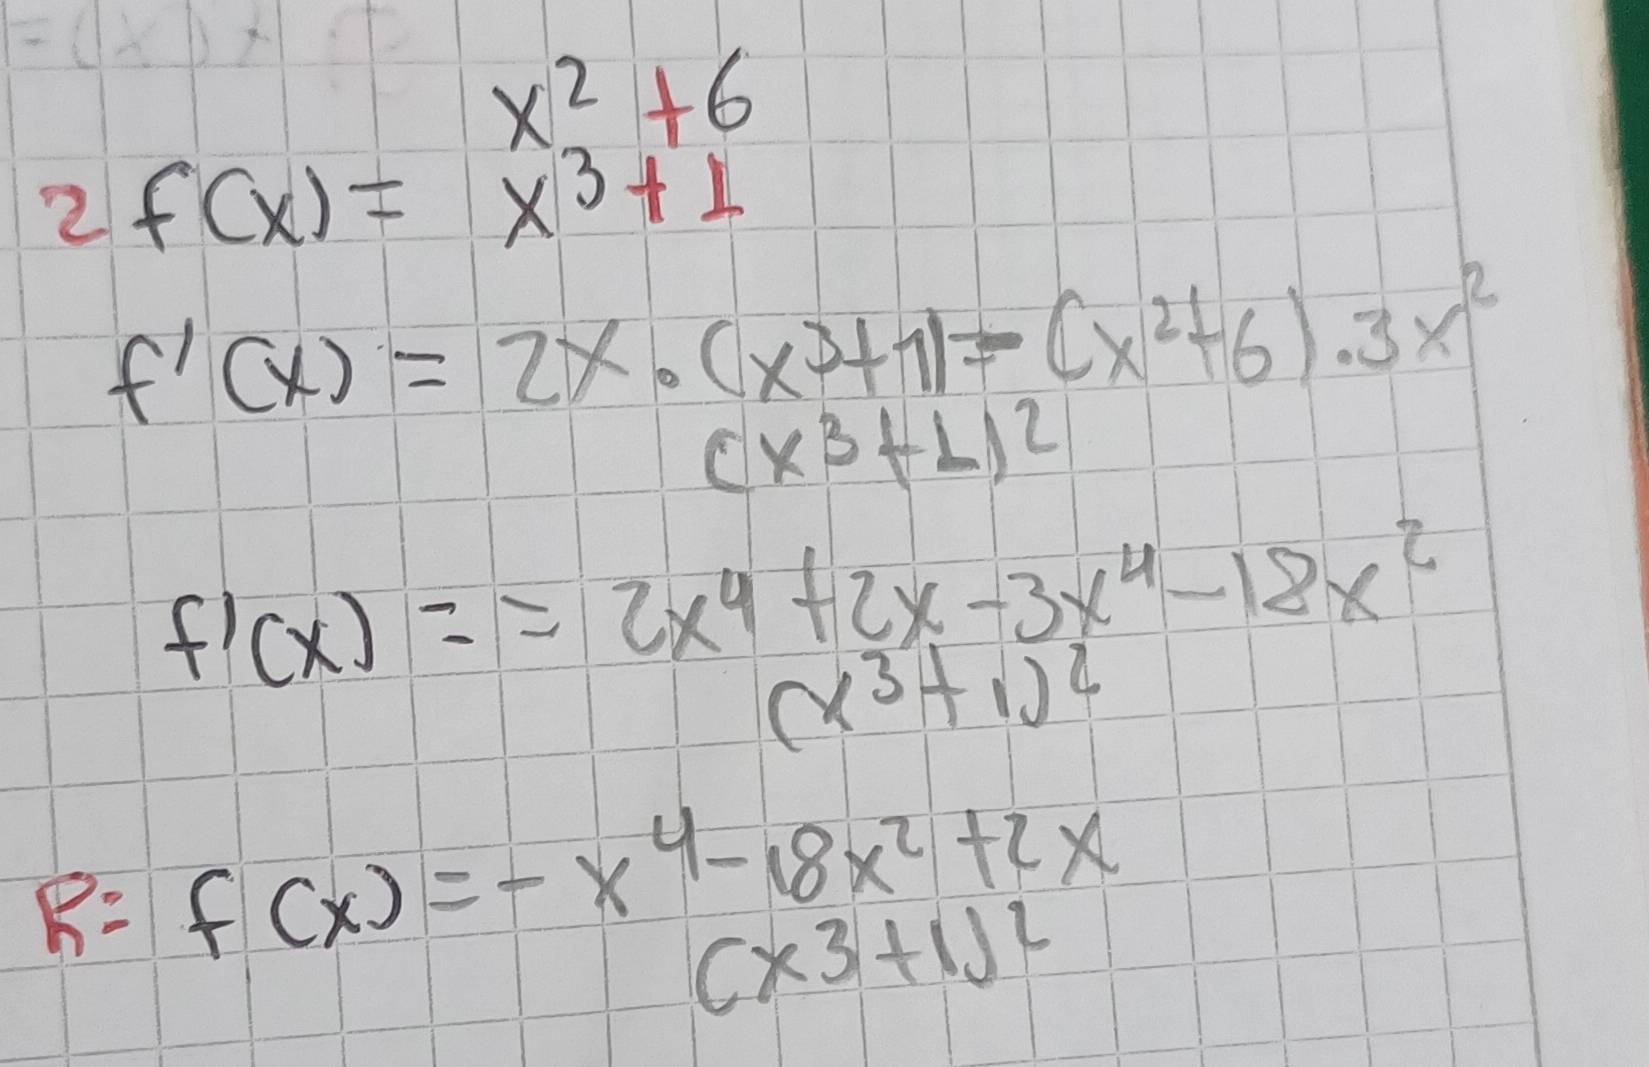 x² + 6
2 f(x) = x³ + 1
f'(x) = 2x · (x³ + 1) - (x² + 6) . 3x²
(x³ + 1)²
f'(x) = = 2x⁴ + 2x - 3x⁴ - 18x²
(x³ + 1)²
R: f(x) = - x⁴ - 18x² + 2x
(x3 + 1)²